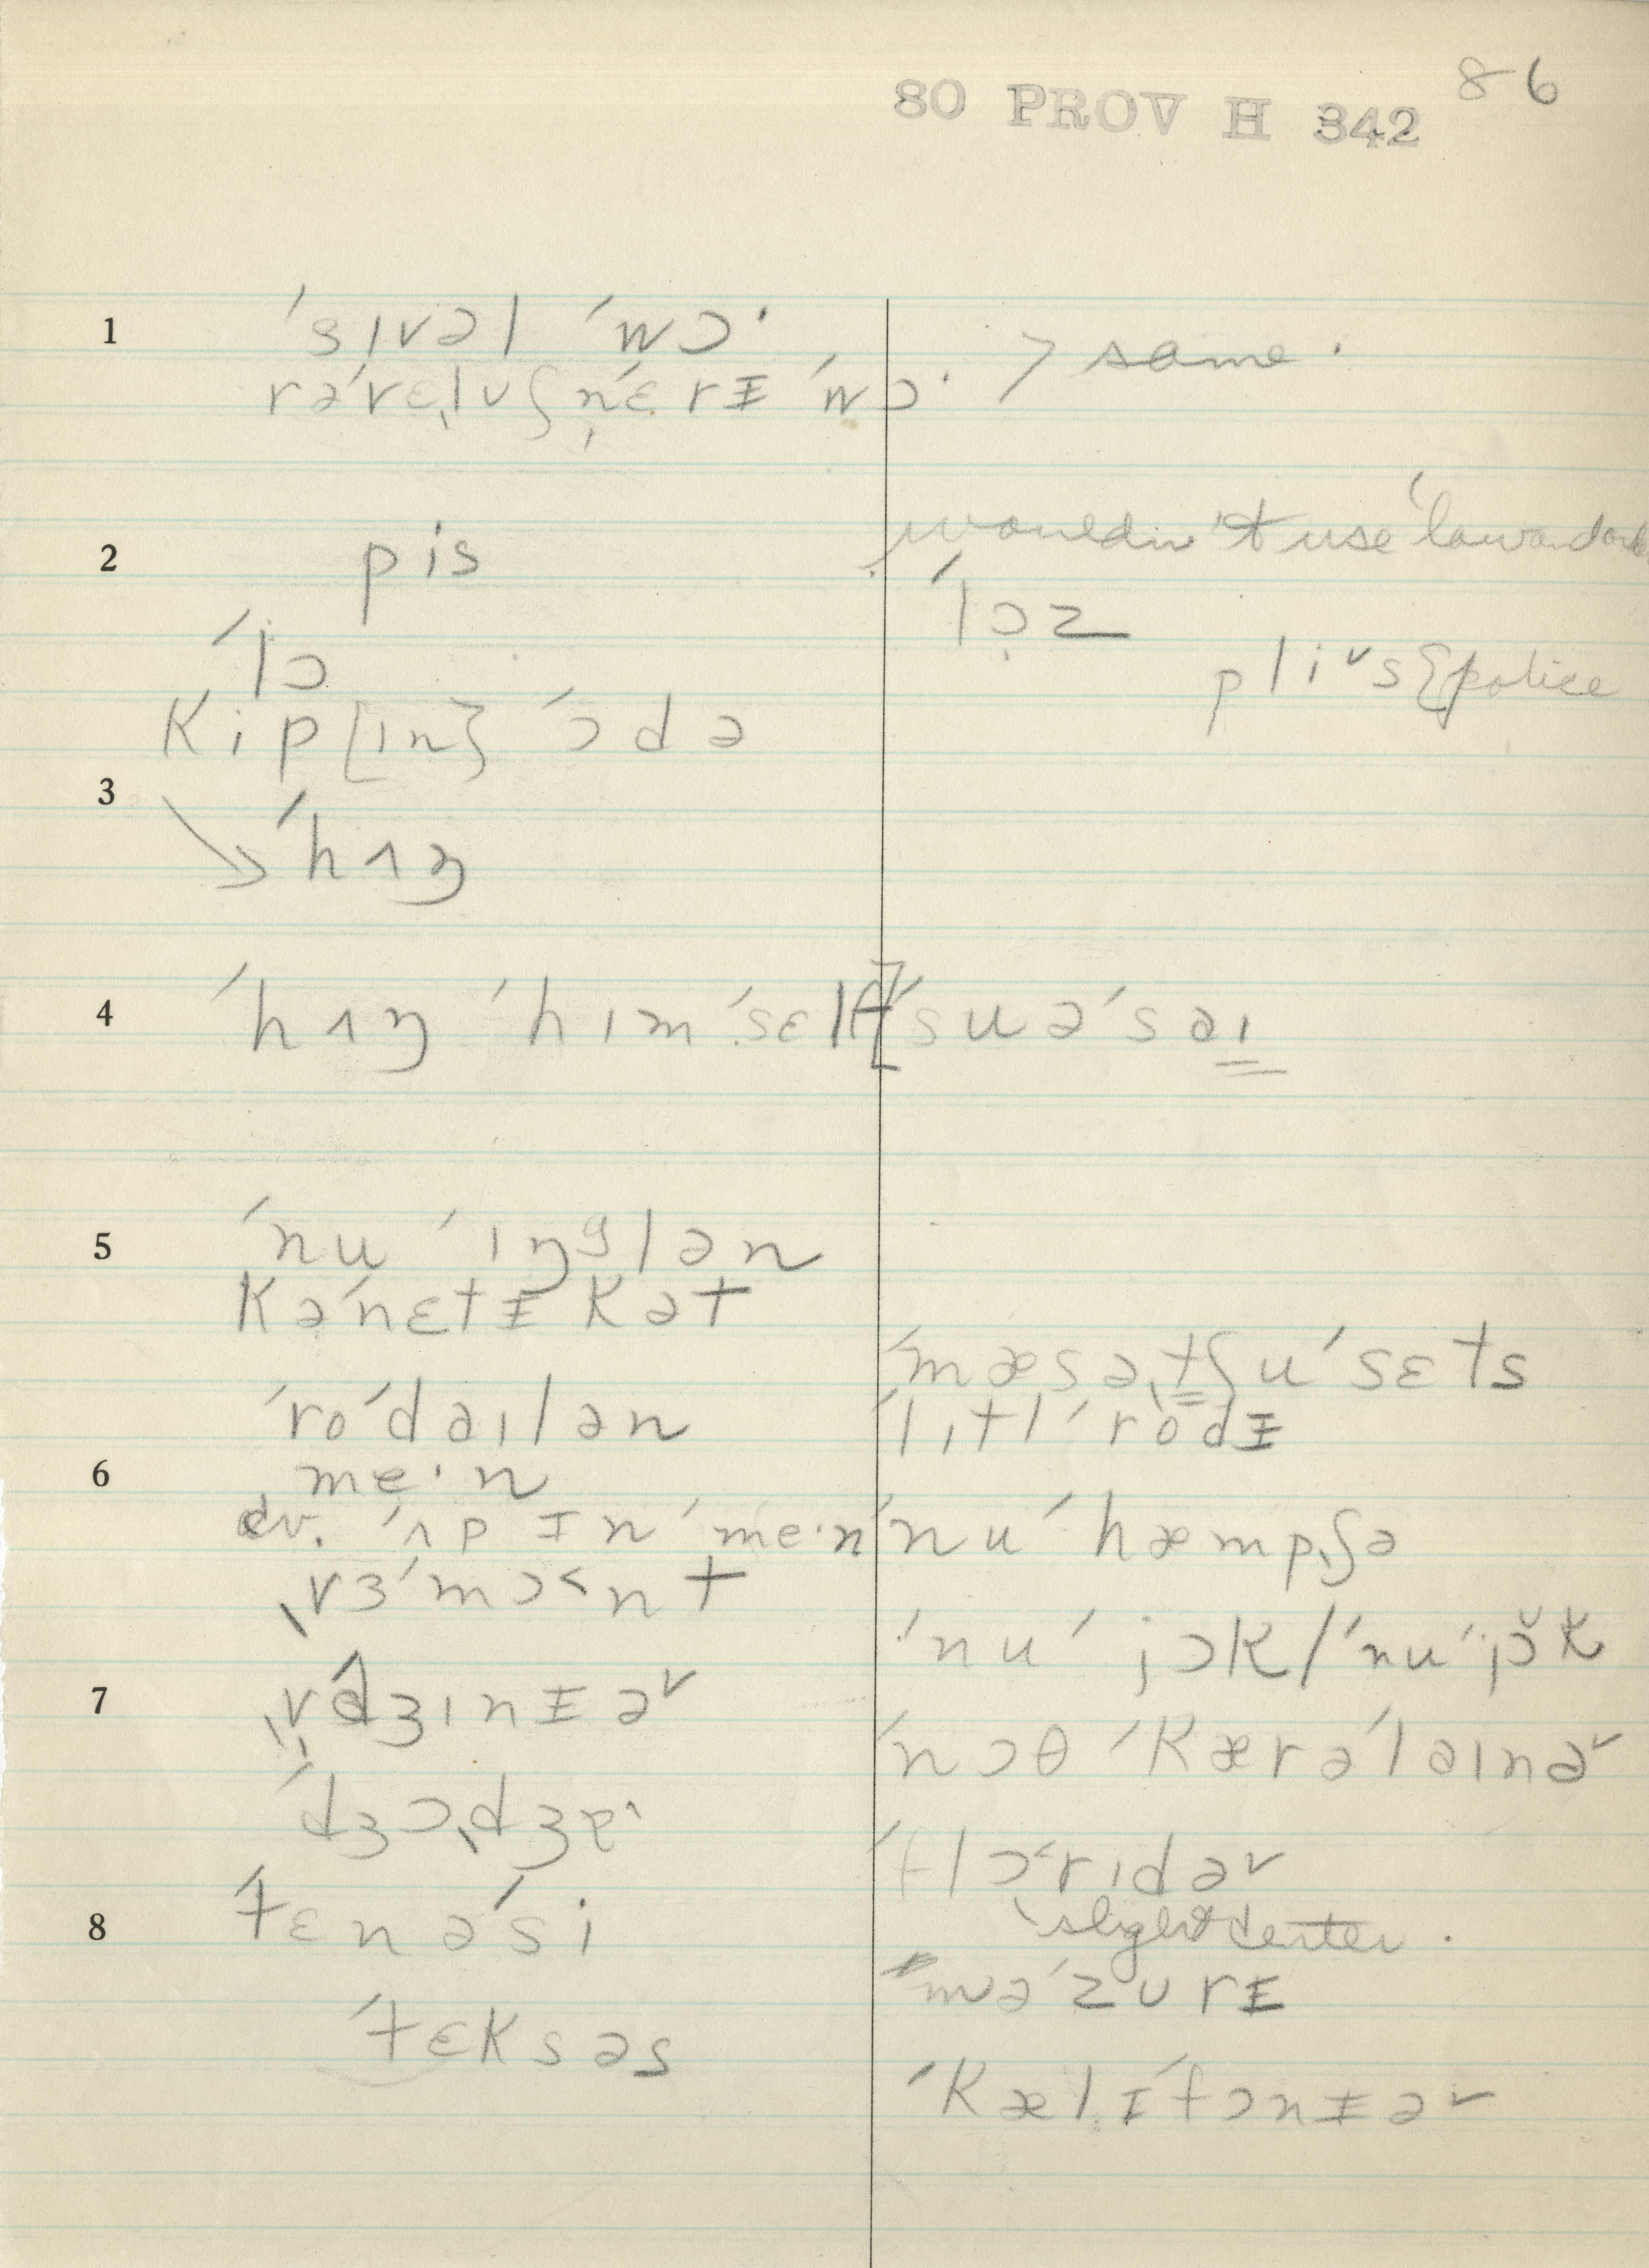 80 PROV H 342 86
1 ˈsɪvəl ˈwɔ·
rəˈvɛlʊʃnˈɛrɪ̵ ˈwɔ· > same.
2 pis
wouldn't use
ˈlɔ
ˈlɔz
pliˇs{police
Kip[ɪn} ˈɔdə
3
ˈhʌŋ
4 ˈhʌŋ ˈhɪmˈsɛlf [ˈsuəˈsaɪ
5 ˈnu ˈɪŋglən
Kəˈnɛtɪ̵kət
ˈmæsəˌtʃuˈsɛts
ˈroˈdaɪlən
ˈlɪtl ˈrodɪ̵
6 me·n
cv. ˈʌp ɪn ˈme·n
ˈnuˈhæmpʃə
vɜˈmɔ˂nt
ˈnuˈjɔk/ˈnuˈjɔ̆k
7 vədʒɪnɪ̵əˇ
ˈnɔθ ˈKærəˈlaɪnəˇ
ˈdʒɔdʒ
ˈflɔ˂rɪdəˇ
slight
8 tɛnəˈsi
məˈzʊrɪ̵
ˈtɛksəs
ˈKælɪˈfɔnɪ̵əˇ